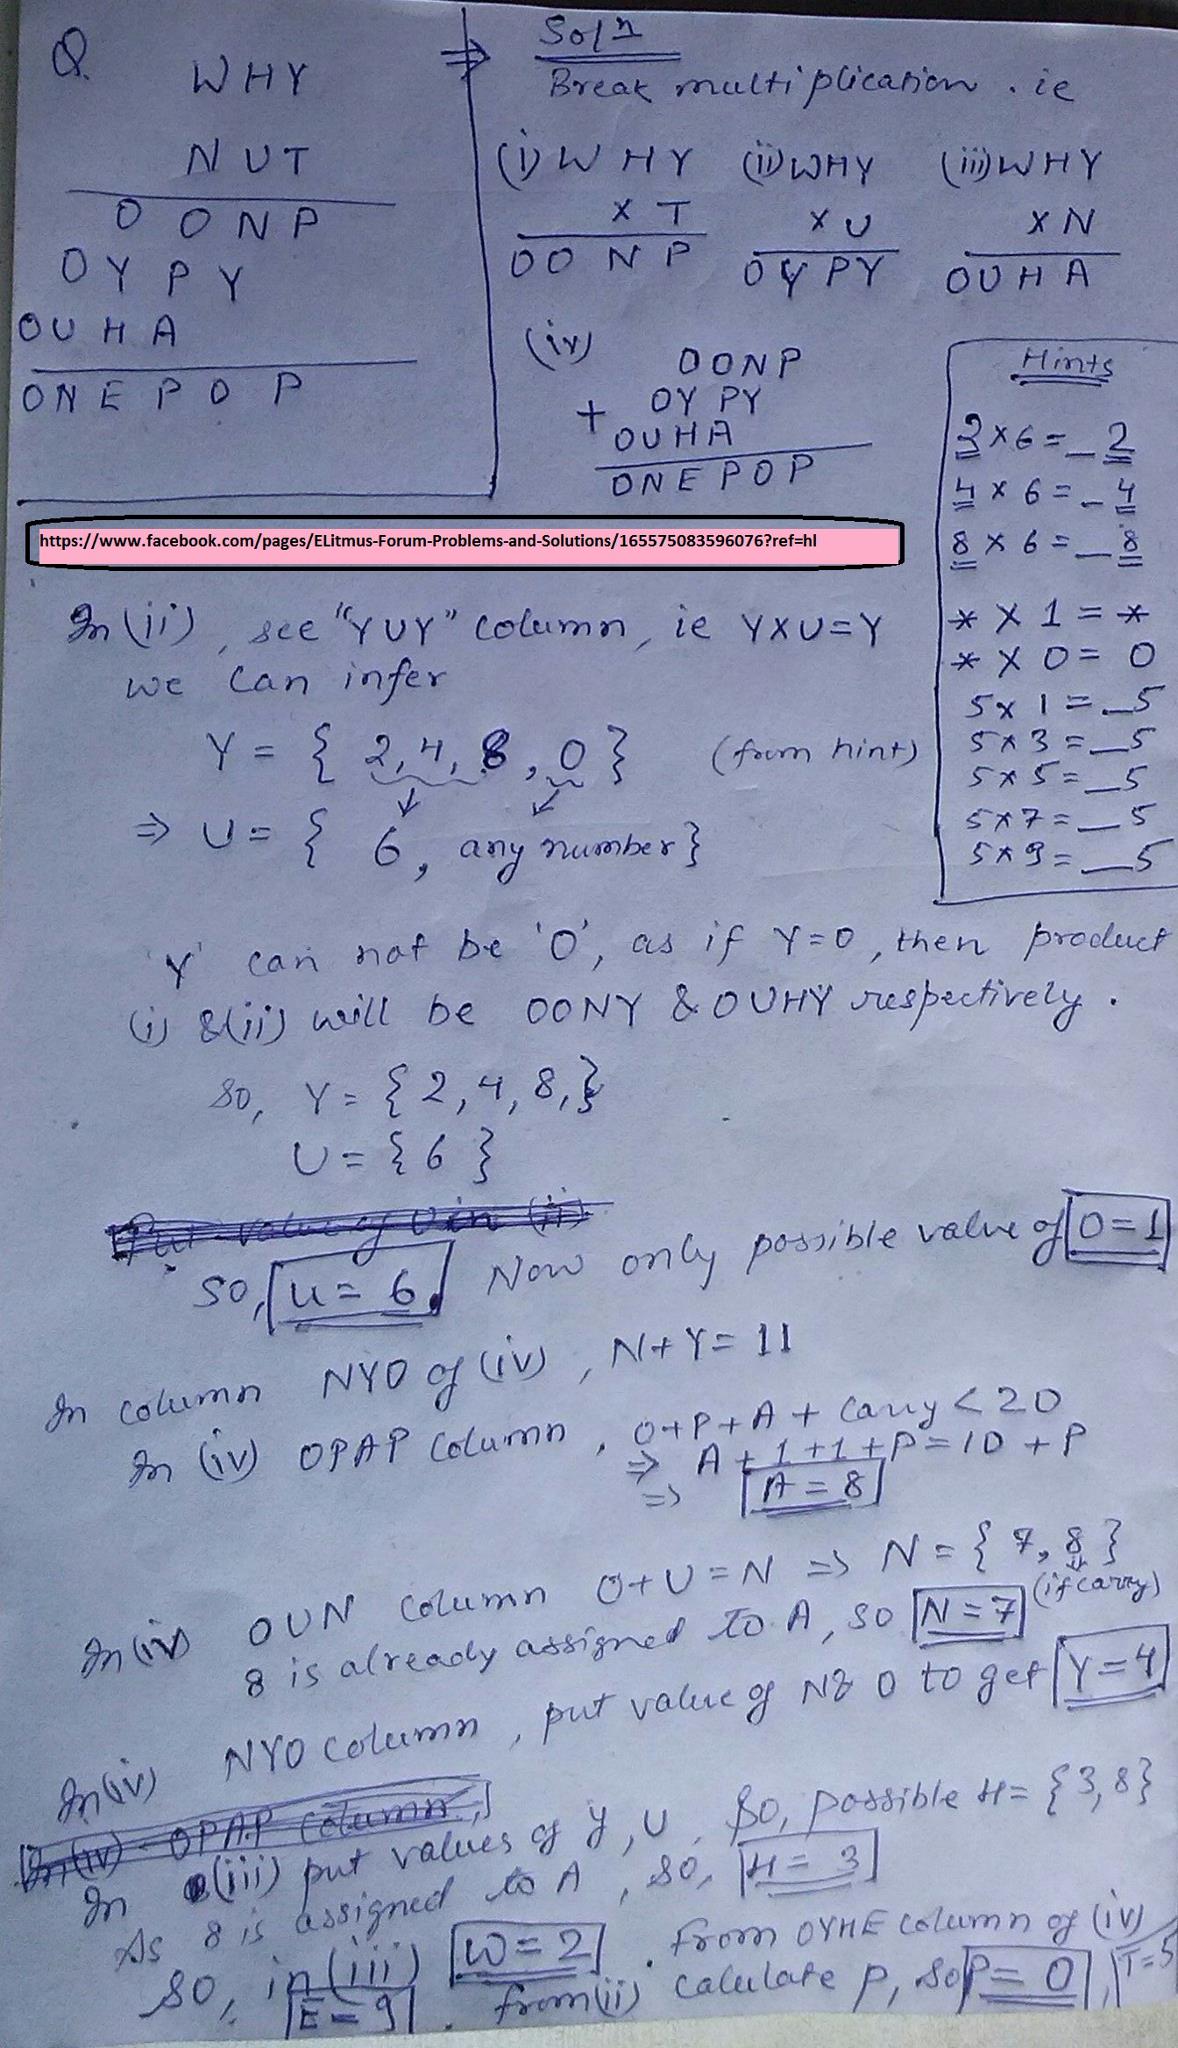 Q. WHY
NUT
O O N P
O Y P Y
O U H A
O N E P O P
⇒ Soln
Break multiplication . ie
(i) W H Y (ii) WHY (iii) WHY
X T X U X N
OO N P OY PY OUH A
(iv) OONP
OY PY
+ OUHA
ONE POP
Hints
2 X 6 = _ 2
4 X 6 = _ 4
8 X 6 = _ 8
* X 1 = *
* X 0 = 0
5 X 1 = _5
5 X 3 = _5
5 X 5 = _5
5 X 7 = _5
5 X 9 = _5
https://www.facebook.com/pages/ELitmus-Forum-Problems-and-Solutions/165575083596076?ref=hl
In (ii) , see "YUY" column, ie YXU=Y
we can infer
Y = { 2, 4, 8, 0 } (from hint)
⇒ U = { 6, any number}
'Y' can not be '0', as if Y=0, then product
(i) &(ii) will be OONY & OUHY respectively.
so, Y = { 2, 4, 8, }
U = { 6 }
Put value of U in (ii)
so, U = 6. Now only possible value of O=1
In column NYO of (iv) , N+Y= 11
In (iv) OPAP column , O+P+A + carry < 20
⇒ A + 1 +1 +P = 10 + P
=> A = 8
In (iv) OUN column O+U=N => N = { 7, 8 }
(if carry)
8 is already assigned to A, so N=7
In (iv) NYO column, put value of N& O to get Y=4
In (iv) OPAP column,
In (iii) put values of Y, U. So, possible H= {3,8}
As 8 is assigned to A , so, H= 3
so, in (iii) W=2 . from OYHE column of (iv)
E=9 . from (ii) calculate P, so P= 0, T=5